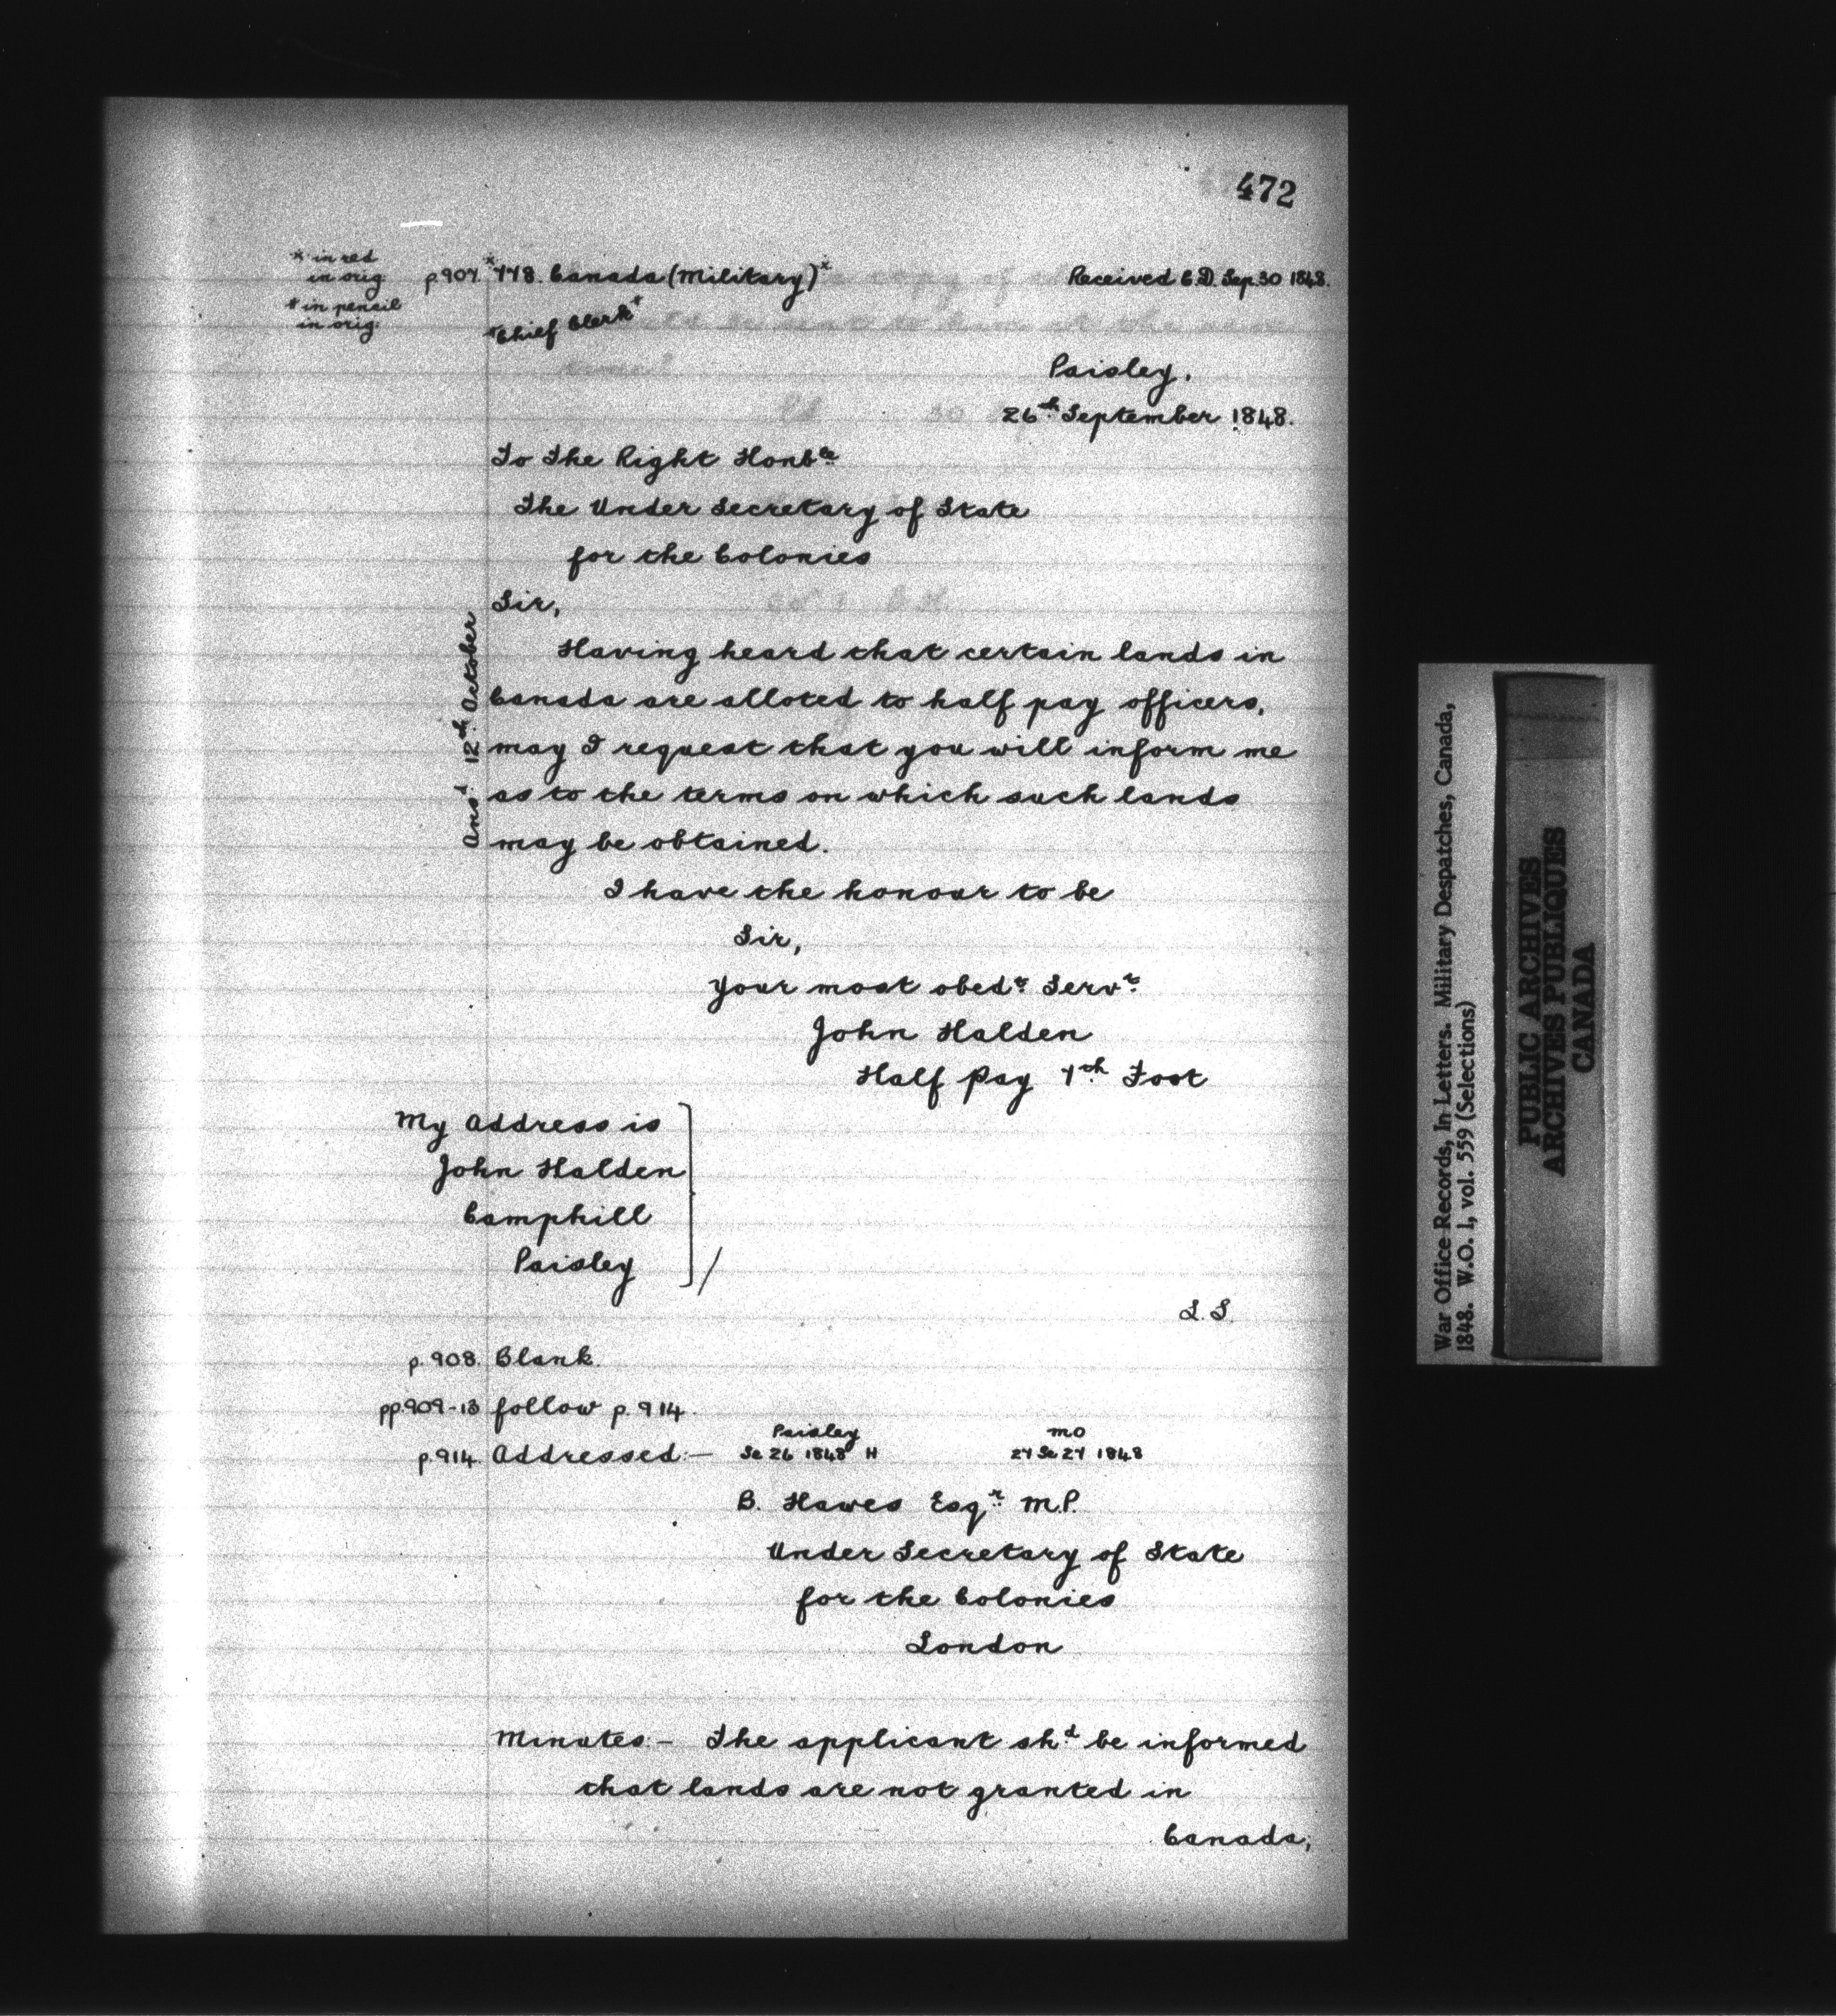 472
* in red
in orig.
# in pencil
in orig.
p.907. *778. Canada (Military)* Received C.D. Sep. 30 1848.
#Chief Clerk#
Paisley.
26th September 1848.
To The Right Honble
The Under Secretary of State
for the Colonies
Sir,
Having heard that certain lands in
Canada are alloted to half pay officers,
may I request that you will inform me
as to the terms on which such lands
may be obtained.
Ansd 12th October
I have the honour to be
Sir,
Your most obedt Servt
John Halden
Half Pay 7th Foot
My Address is
John Halden
Camphill
Paisley
L.S.
p.908. Blank.
pp.909-13 follow p.914.
p.914. Addressed:—
Paisley
Se 26 1848 H
MO
27 Se 27 1848
B. Hawes Esqr M.P.
Under Secretary of State
for the Colonies
London
Minutes:— The applicant shd be informed
that lands are not granted in
Canada,
War Office Records, In Letters. Military Despatches, Canada,
1848. W.O. 1, vol. 559 (Selections)
PUBLIC ARCHIVES
ARCHIVES PUBLIQUES
CANADA